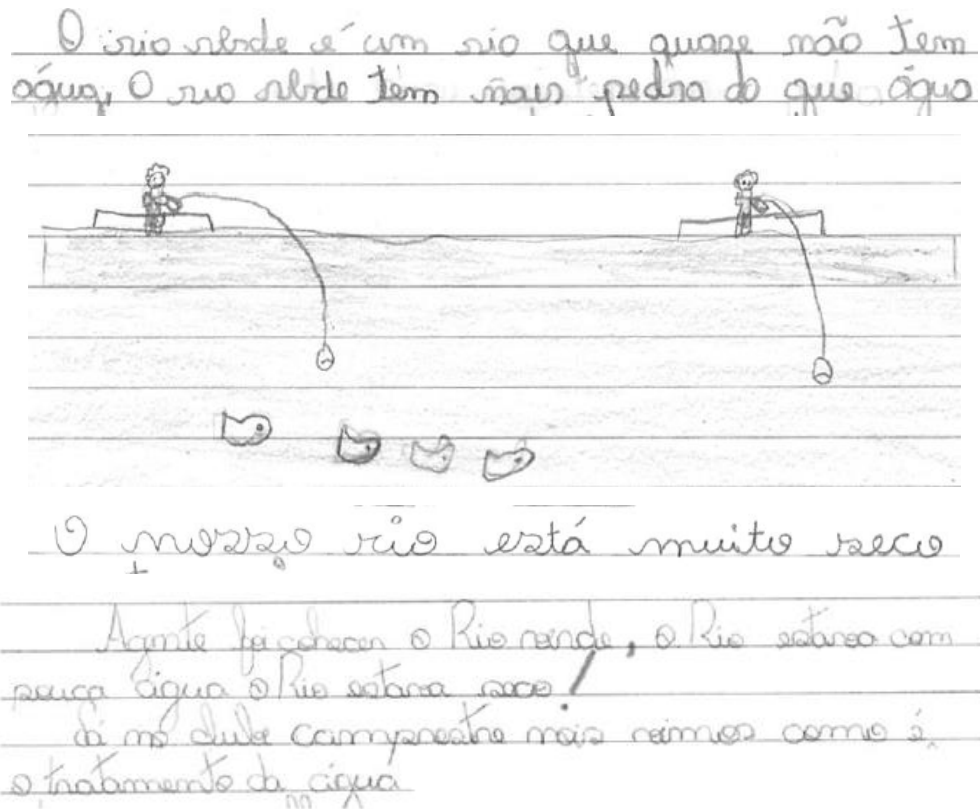 O rio vbde é um rio que quase não tem
água, O rio vbde tem mais pedra do que água
O nosso rio está muito seco
Agente foi conhecer o Rio verde, o Rio estava com
pouca água o Rio estava seco!
lá no clube campestre nois vimos como é
o tratamento da água